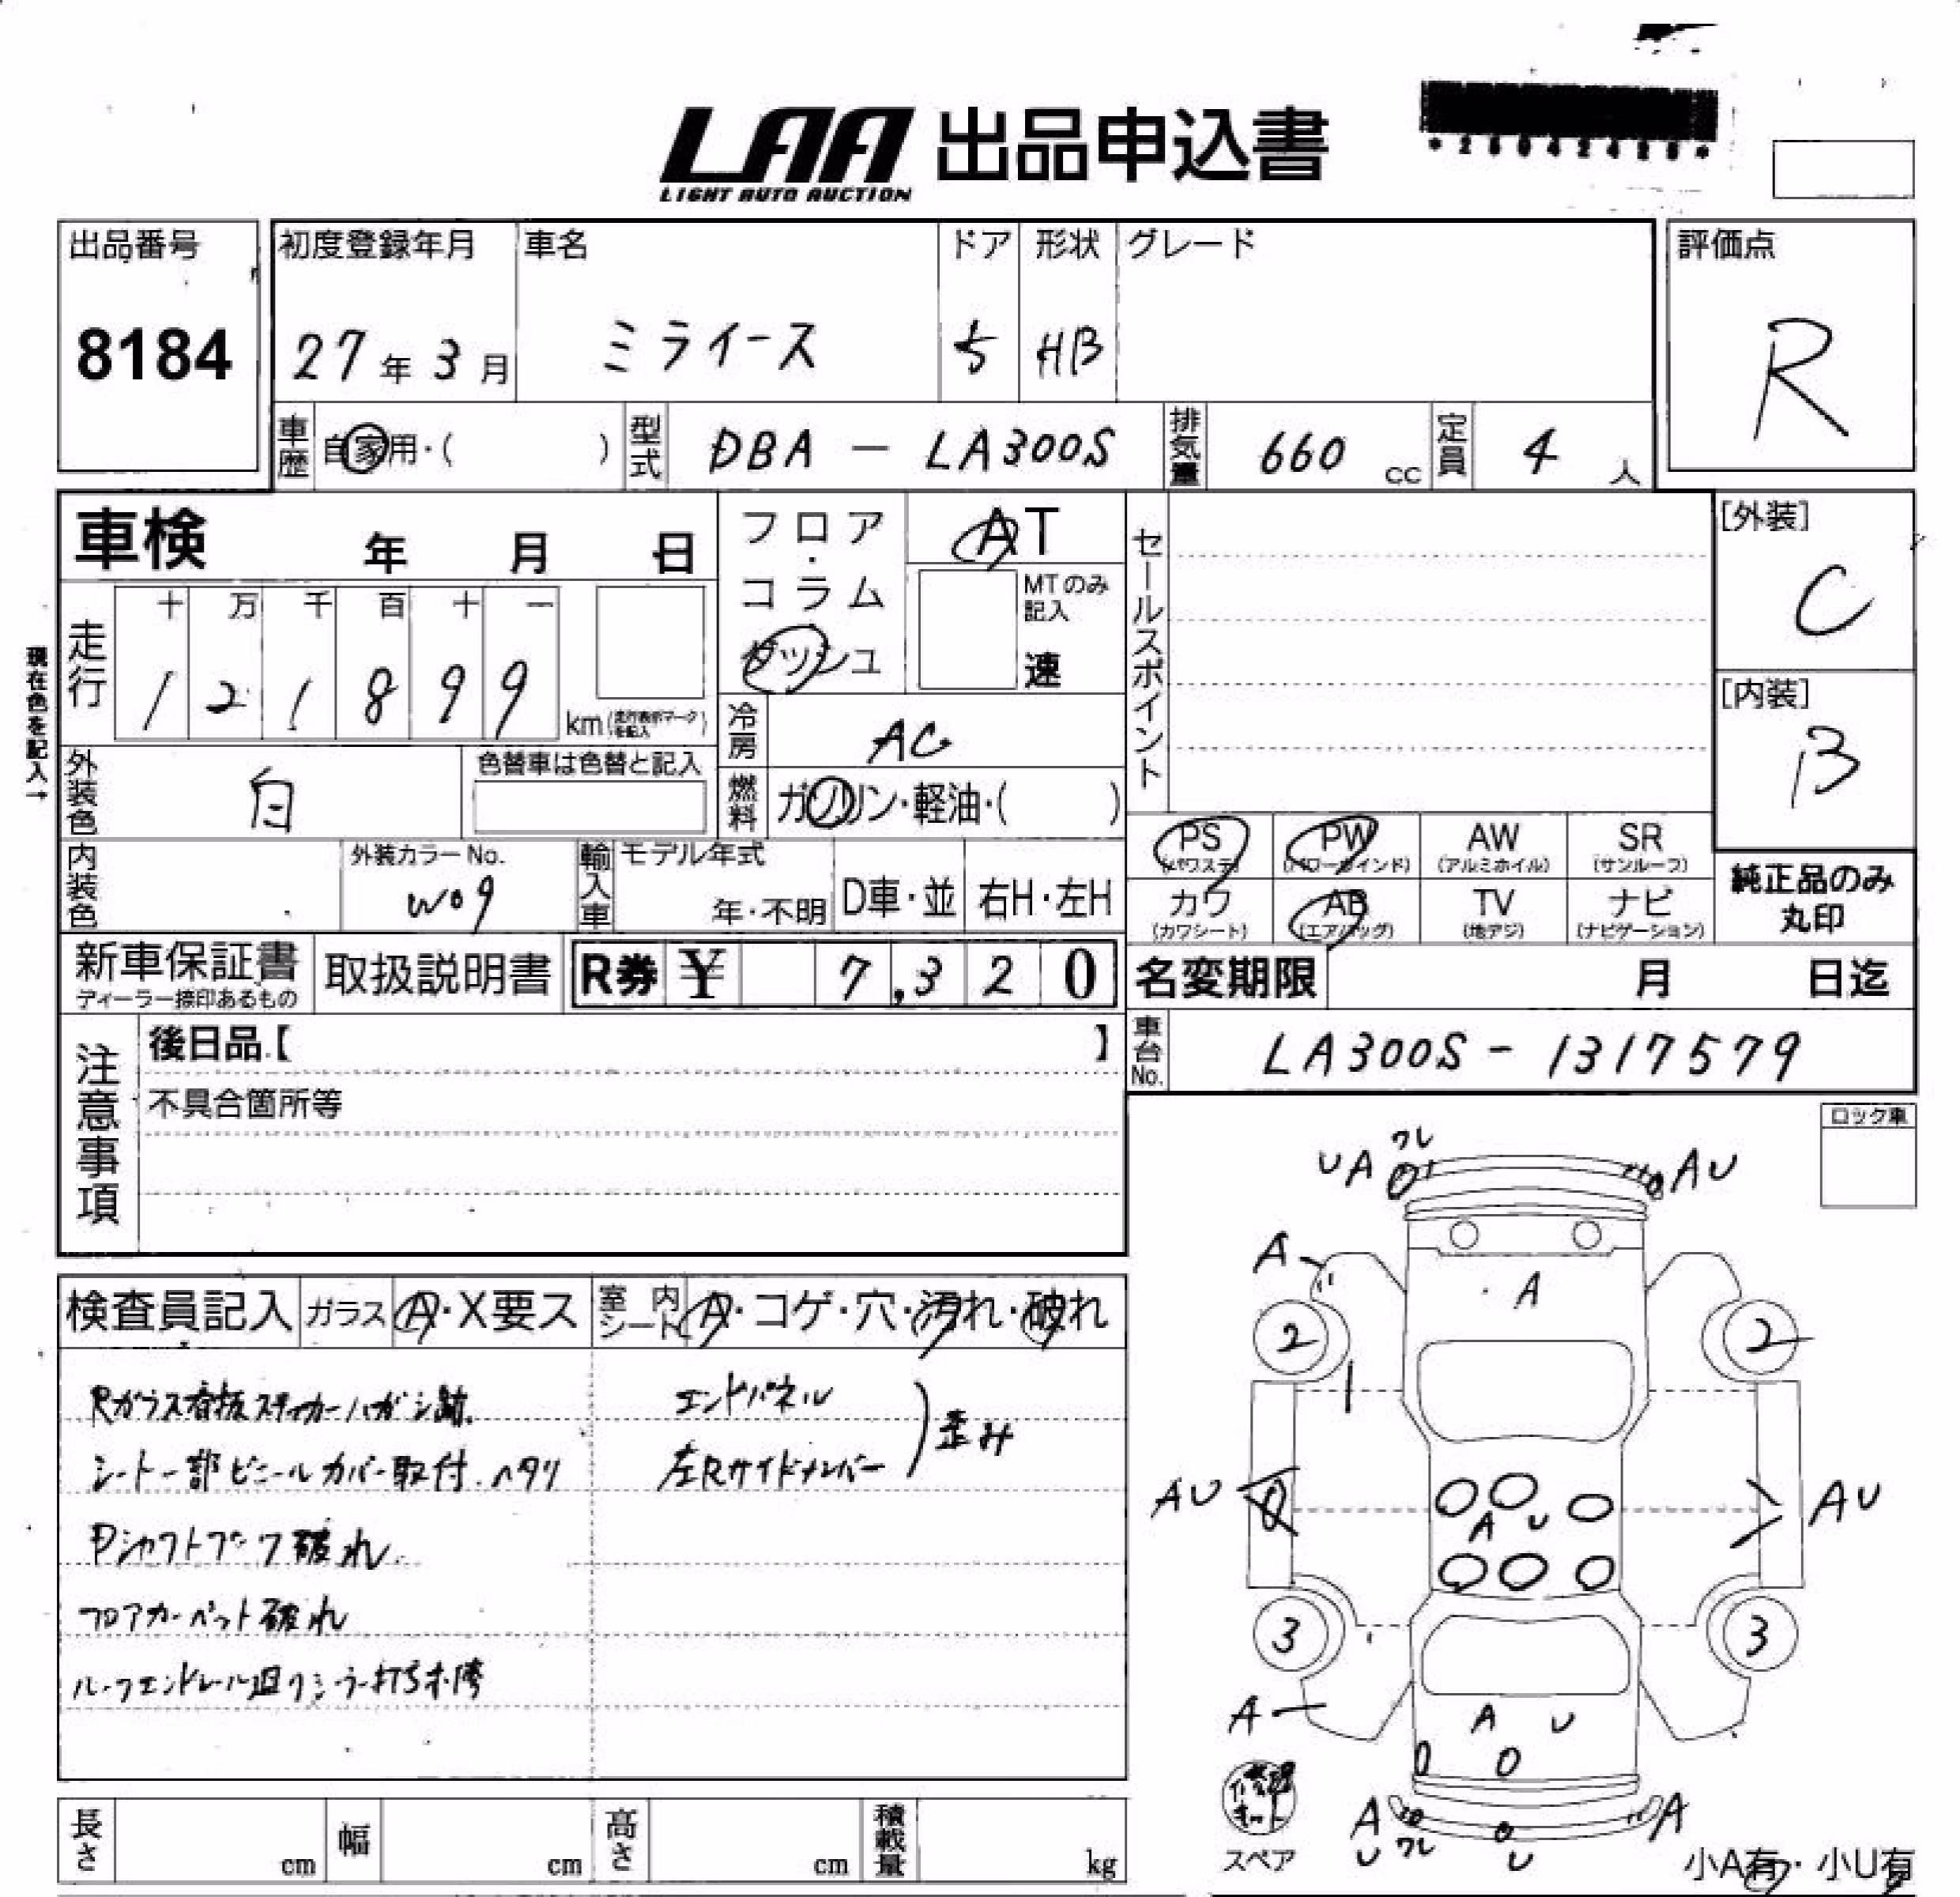 LAA 出品申込書
LIGHT AUTO AUCTION
出品番号
8184
初度登録年月
27年3月
車名
ミライース
ドア
5
形状
HB
グレード
評価点
R
車歴
自家用・( )
型式
DBA - LA300S
排気量
660 cc
定員
4 人
車検 年 月 日
フロア・コラム
ダッシュ
AT
MTのみ記入
速
セールスポイント
[外装]
C
[内装]
B
現在色を記入→
走行
十 万 千 百 十 一
1 2 1 8 9 9
km(走行表示マークを記入)
冷房
AC
外装色
白
色替車は色替と記入
燃料
ガソリン・軽油・( )
内装色
外装カラーNo.
W09
輸入車
モデル年式
年・不明
D車・並
右H・左H
PS
(パワステ)
PW
(パワーウインド)
AW
(アルミホイル)
SR
(サンルーフ)
カワ
(カワシート)
AB
(エアバッグ)
TV
(地デジ)
ナビ
(ナビゲーション)
純正品のみ
丸印
新車保証書
ディーラー捺印あるもの
取扱説明書
R券 ¥ 7,320
名変期限 月 日迄
注意事項
後日品【 】
不具合箇所等
車台No.
LA300S - 1317579
ロック車
検査員記入
ガラス
A・X要ス
室内シート
A・コゲ・穴・汚れ・破れ
Rガラス看板ステッカーハガシ跡.
シート一部ビニールカバー取付.ヘタリ
Pシャフトブーツ破れ.
フロアカーペット破れ
エンドパネル
左Rサイドメンバー
歪み
UA ワレ
AU
A
A
2
2
AU
A U
AU
3
3
A
A U
修理キット
スペア
A U ワレ
U
A
小A有・小U有
長さ cm
幅 cm
高さ cm
積載量 kg